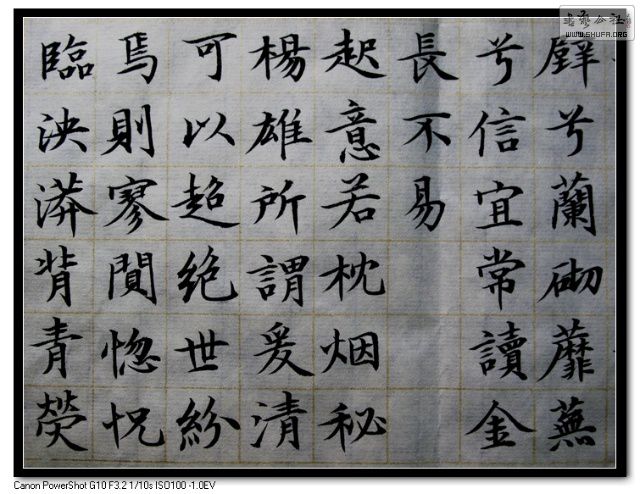 書藝公社
WWW.SHUFA.ORG
壁兮蘭砌蘼蕪
兮信宜常讀金
長不易
起意若枕烟秘
楊雄所謂爰清
可以超絕世紛
焉則寥閴惚怳
臨泱漭背青熒
Canon PowerShot G10 F3.2 1/10s ISO100 -1.0EV